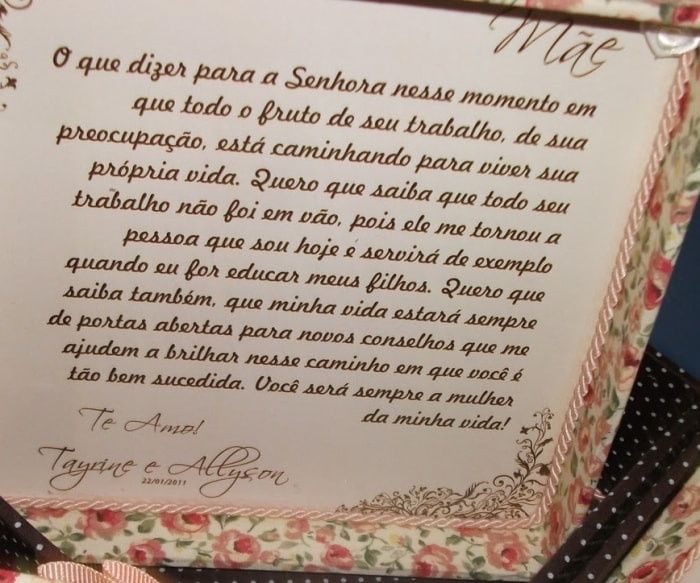 Mãe
O que dizer para a Senhora nesse momento em
que todo o fruto de seu trabalho, de sua
preocupação, está caminhando para viver sua
própria vida. Quero que saiba que todo seu
trabalho não foi em vão, pois ele me tornou a
pessoa que sou hoje e servirá de exemplo
quando eu for educar meus filhos. Quero que
saiba também, que minha vida estará sempre
de portas abertas para novos conselhos que me
ajudem a brilhar nesse caminho em que você é
tão bem sucedida. Você será sempre a mulher
da minha vida!
Te Amo!
Tayrine e Allyson
22/01/2011